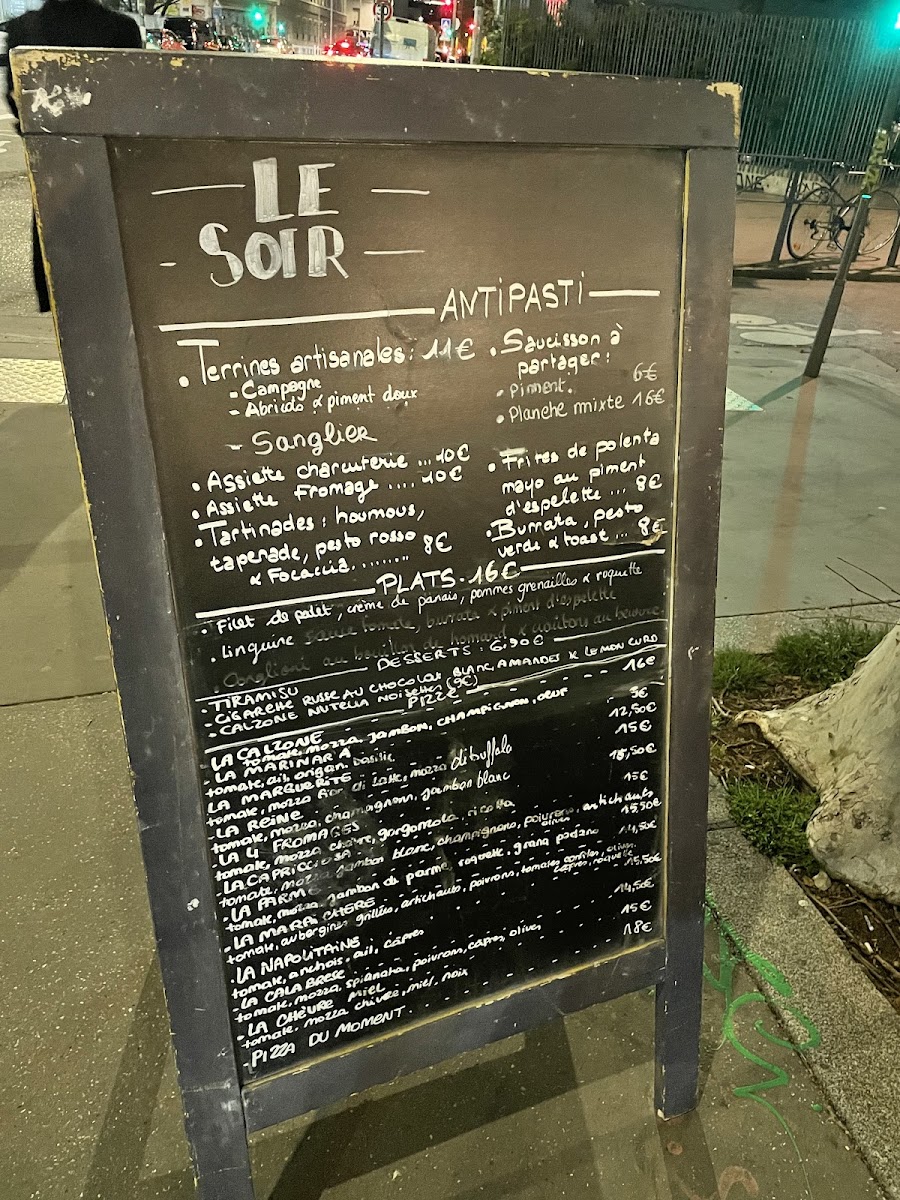 LE
SOIR
ANTIPASTI
• Terrines artisanales : 11€
- Campagne
- Abricots & piment doux
- Sanglier
• Assiette charcuterie ... 10€
• Assiette fromage .... 10€
• Tartinades : houmous,
tapenade, pesto rosso
& Focaccia ........ 8€
• Saucisson à
partager :
• Piment. 6€
• Planche mixte 16€
• Frites de polenta
mayo au piment
d'espelette ... 8€
• Burrata, pesto
verde & toast ... 8€
PLATS . 16€
• Filet de palet, crème de panais, pommes grenailles & roquette
• Linguine sauce tomate, burrata & piment d'espelette
au bouillon de homard & croûtons au beurre
DESSERTS : 6.90€
- TIRAMISU
- CIGARETTE RUSSE AU CHOCOLAT BLANC, AMANDES & LEMON CURD
- CALZONE NUTELLA NOISETTES (9€)
PIZZE
- LA CALZONE 16€
tomate, mozza, jambon, champignon, oeuf
- LA MARINARA 9€
tomate, ail, origan, basilic
- LA MARGUERITE 12,50€
tomate, mozza fior di latte, mozza di buffala
- LA REINE 15€
tomate, mozza, champignons, jambon blanc
- LA 4 FROMAGES 15,50€
tomate, mozza, chèvre, gorgonzola, ricotta
- LA CAPRICCIOSA 15€
tomate, mozza, jambon blanc, champignons, poivrons, artichauts,
olives
- LA PARME 15,50€
tomate, mozza, jambon de parme, roquette, grana padano
- LA MARAICHERE 14,50€
tomate, aubergines grillées, artichauts, poivrons, tomates confites, olives,
capres, roquette
- LA NAPOLITAINE 15,50€
tomate, anchois, ail, câpres
- LA CALABRESE 14,50€
tomate, mozza, spianata, poivrons, capres, olives
- LA CHÈVRE MIEL 15€
tomate, mozza chèvre, miel, noix
- PIZZA DU MOMENT. 18€